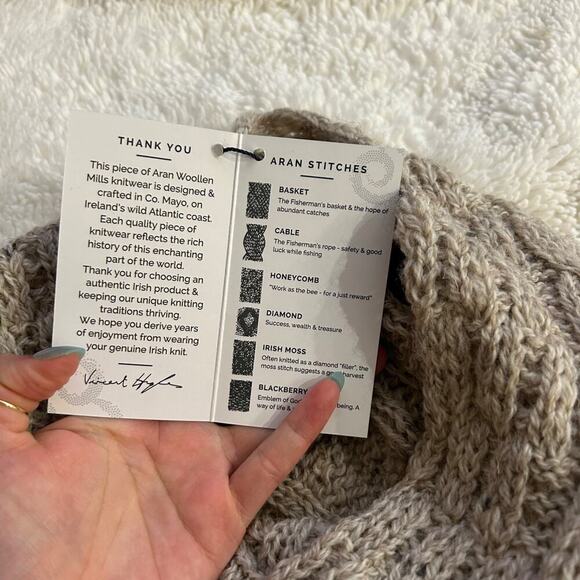 THANK YOU
This piece of Aran Woollen
Mills knitwear is designed &
crafted in Co. Mayo, on
Ireland's wild Atlantic coast.
Each quality piece of
knitwear reflects the rich
history of this enchanting
part of the world.
Thank you for choosing an
authentic Irish product &
keeping our unique knitting
traditions thriving.
We hope you derive years
of enjoyment from wearing
your genuine Irish knit.
Vincent Hughes
ARAN STITCHES
BASKET
The Fisherman's basket & the hope of
abundant catches
CABLE
The Fisherman's rope - safety & good
luck while fishing
HONEYCOMB
"Work as the bee - for a just reward"
DIAMOND
Success, wealth & treasure
IRISH MOSS
Often knitted as a diamond "filler", the
moss stitch suggests a harvest
BLACKBERRY
Emblem of being. A
way of life &